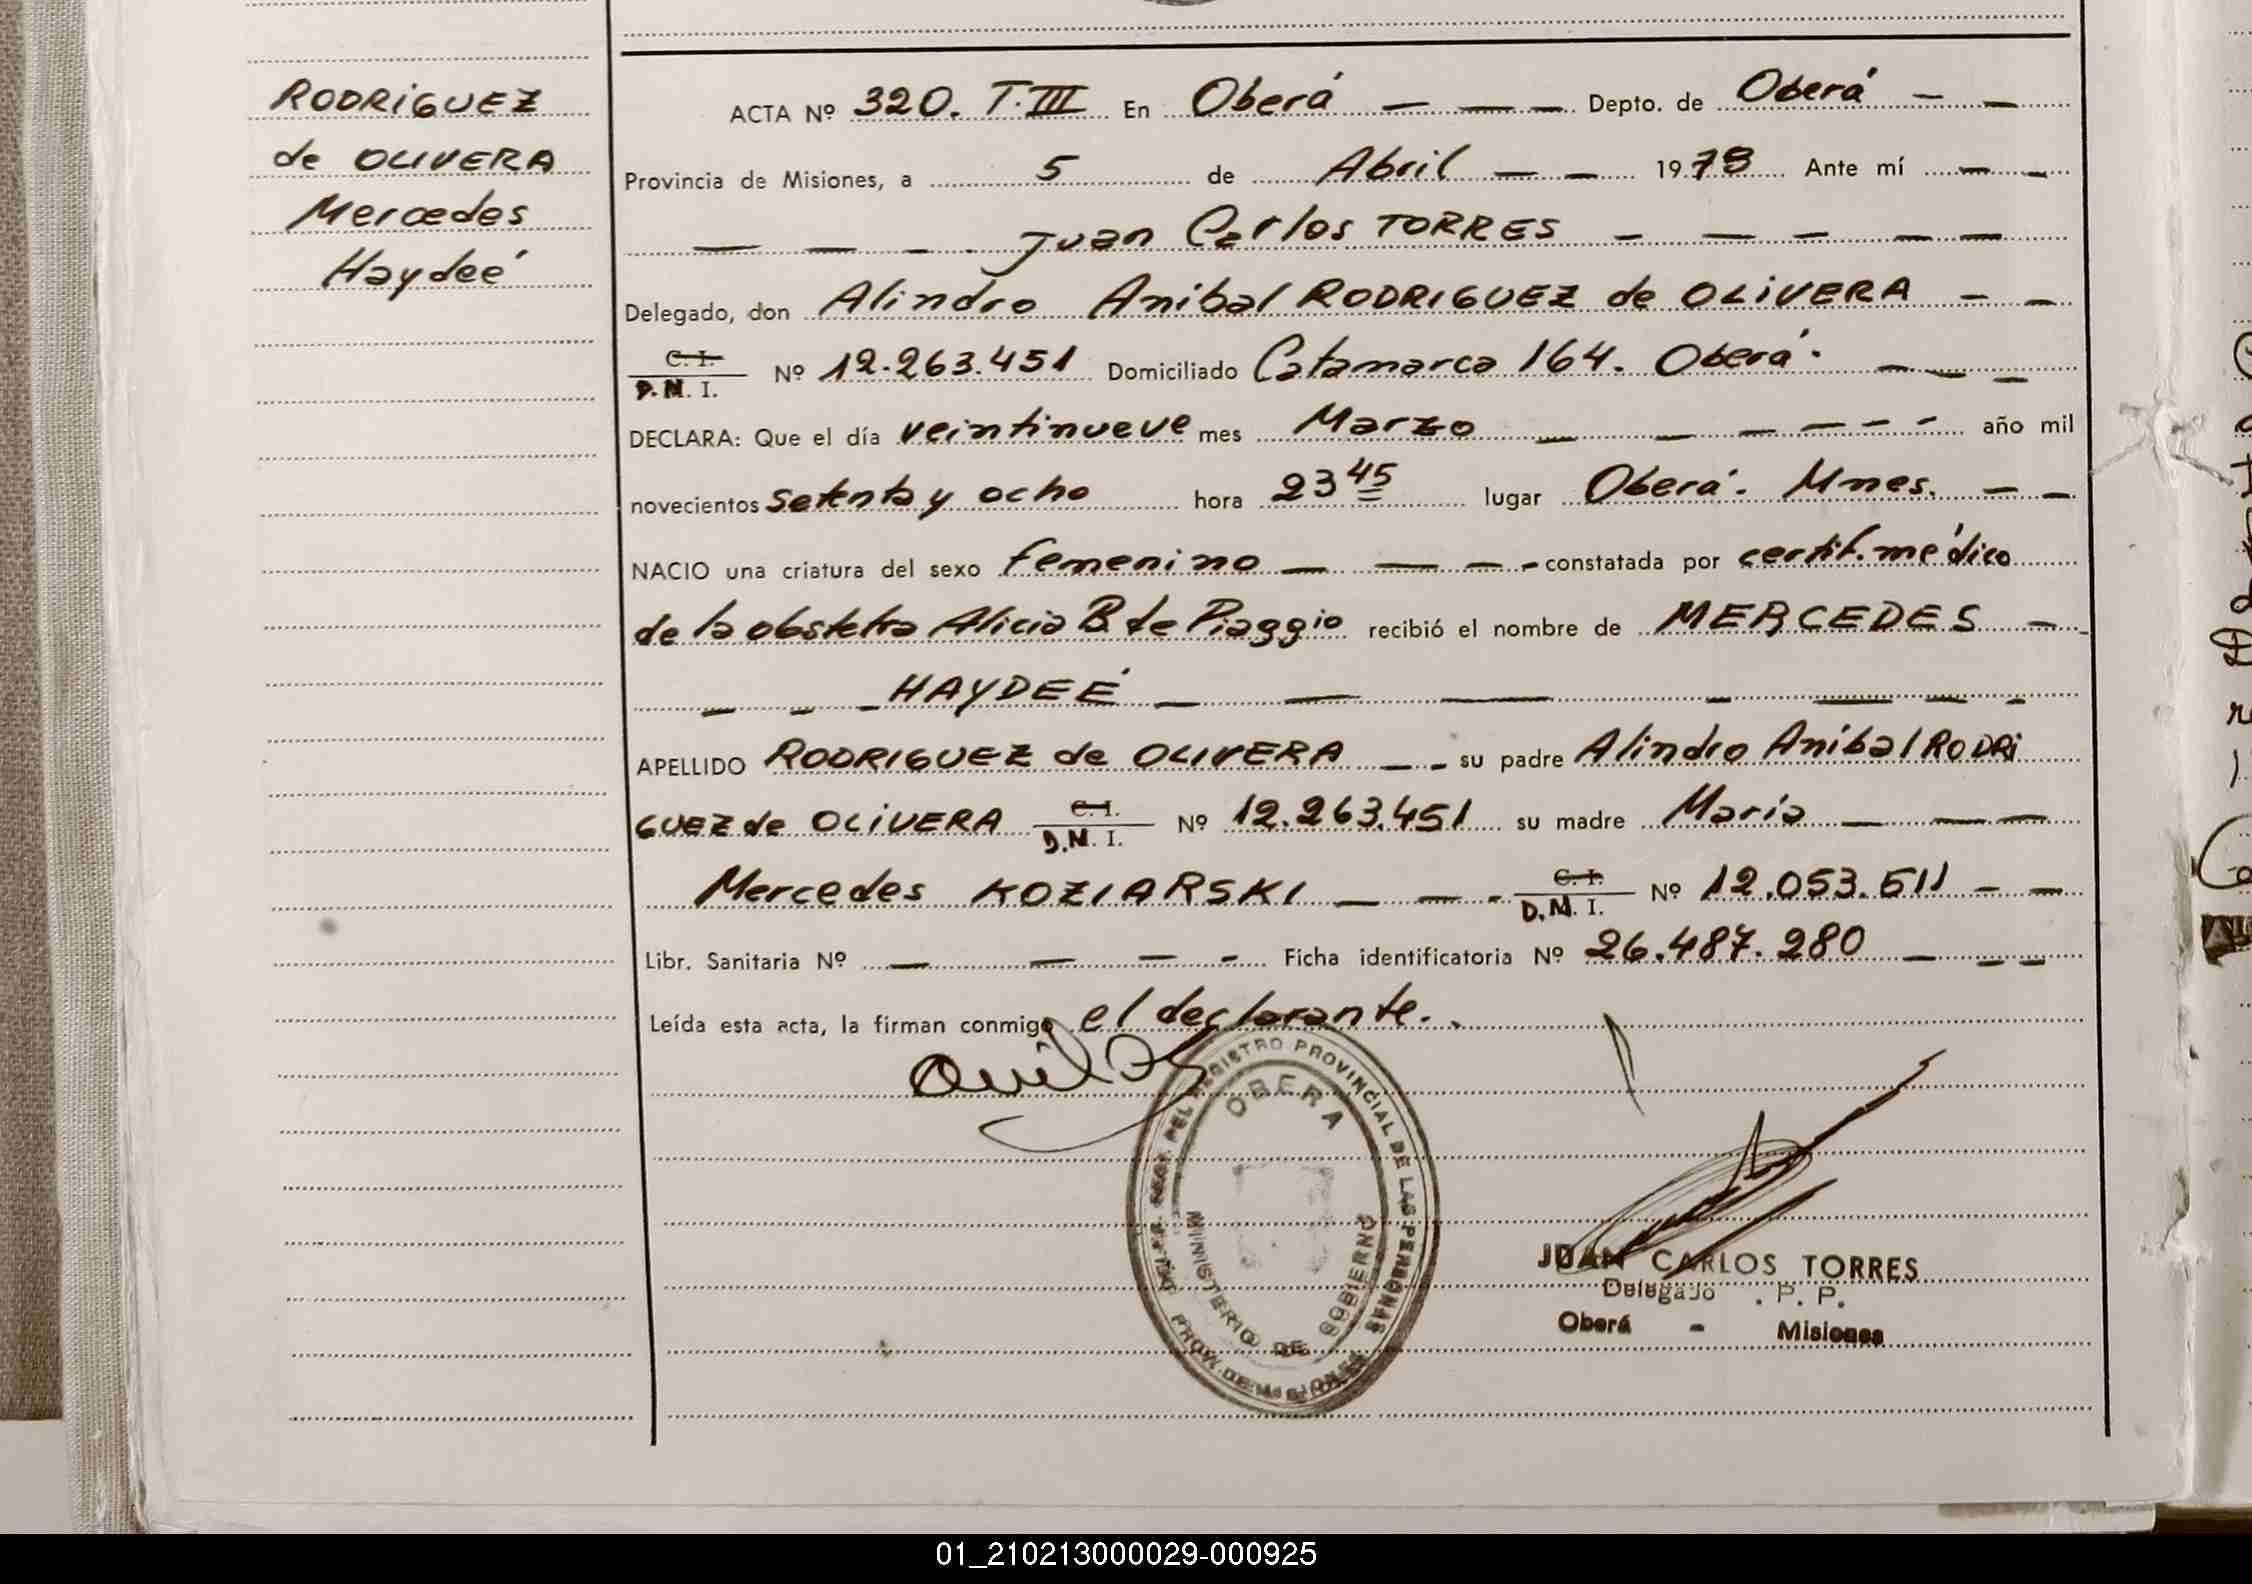 RODRIGUEZ
de OLIVERA
Mercedes
Haydeé
ACTA Nº 320. T. III En Oberá — — — Depto. de Oberá — —
Provincia de Misiones, a 5 de Abril — — 1978 Ante mí — —
— — — Juan Carlos TORRES — — — — —
Delegado, don Alindro Anibal RODRIGUEZ de OLIVERA — —
C. I.
D. N. I. Nº 12.263.451 Domiciliado Catamarca 164. Oberá. — — —
DECLARA: Que el día veintinueve mes Marzo — — — — — — año mil
novecientos setenta y ocho hora 23 45 lugar Oberá. Mnes. — —
NACIO una criatura del sexo femenino — — — — constatada por certif. médico
de la obstetra Alicia B. de Piaggio recibió el nombre de MERCEDES —
— — — HAYDEÉ — — — — — — —
APELLIDO RODRIGUEZ de OLIVERA — — su padre Alindro Anibal RODRI
GUEZ de OLIVERA C. I.
D. N. I. Nº 12.263.451 su madre María — — —
Mercedes KOZIARSKI — — — C. I.
D. N. I. Nº 12.053.511 — —
Libr. Sanitaria Nº — — — — Ficha identificatoria Nº 26.487.280 — — —
Leída esta acta, la firman conmigo el declarante.
REGISTRO PROVINCIAL DE LAS PERSONAS
OBERA
MINISTERIO DE GOBIERNO
PROV. DE MISIONES
JUAN CARLOS TORRES
Delegado . P. P.
Oberá - Misiones
01_210213000029-000925